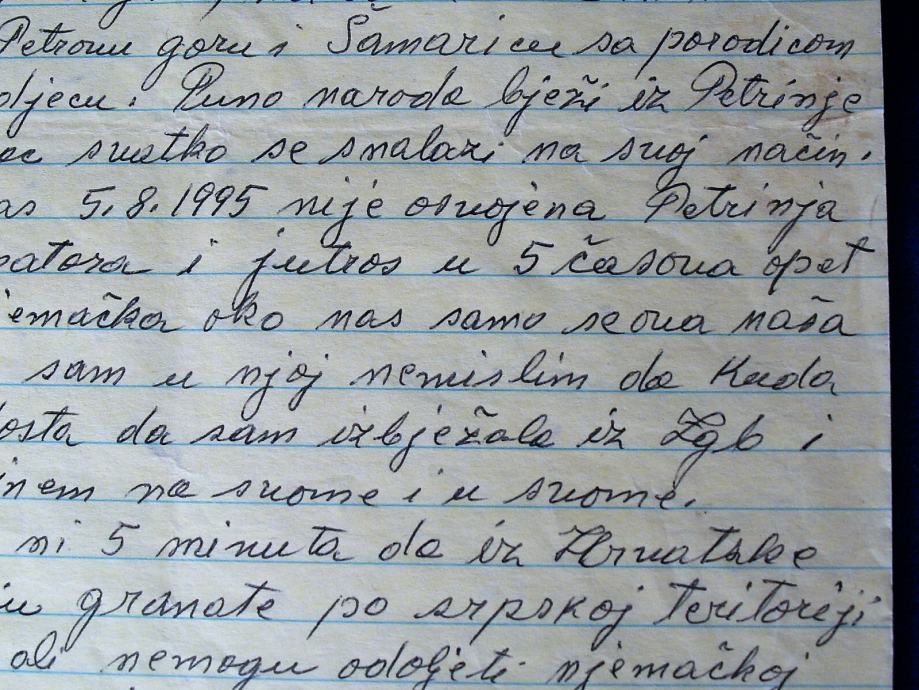 Petrovu goru i Šamaricu sa porodicom
djecu. Puno naroda bježi iz Petrinje
svatko se snalazi na svoj način.
5.8.1995 nije osvojena Petrinja
i jutros u 5 časova opet
jemačka oko nas samo se ova naša
sam u njoj nemislim da kuda
dosta da sam izbježala iz Zgb i
na svome i u svome.
ni 5 minuta da iz Hrvatske
granate po srpskoj teritoriji
ali nemogu odoljeti njemačkoj